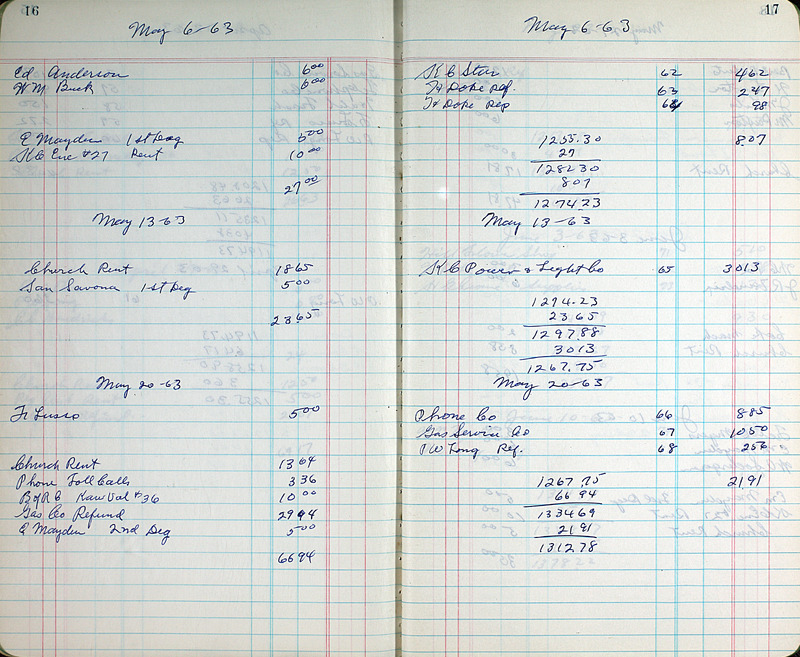 16
May 6-63
Ed Anderson 6 00
W M Buck 6 00
E Mayden 1st Deg 5 00
K C Enc #27 Rent 10 00
27 00
May 13-63
Church Rent 18 65
San Savona 1st Deg 5 00
23 65
May 20-63
Fr Lusco 5 00
Church Rent 13 64
Phone Toll Calls 3 36
B of R C Kaw Val #36 10 00
Gas Co Refund 29 94
E Mayden 2nd Deg 5 00
66 94
17
May 6-63
K C Star 62 4 62
63 2 47
64 98
1255.30 8.07
27
1282 30
8 07
1274 23
May 13-63
K C Power & Light Co 65 30 13
1274.23
23 65
1297.88
30 13
1267.75
May 20-63
Phone Co 66 8 85
Gas Service Co 67 10 50
P W Long Ref. 68 2 56
1267.75 21 91
66 94
1334 69
21 91
1312.78